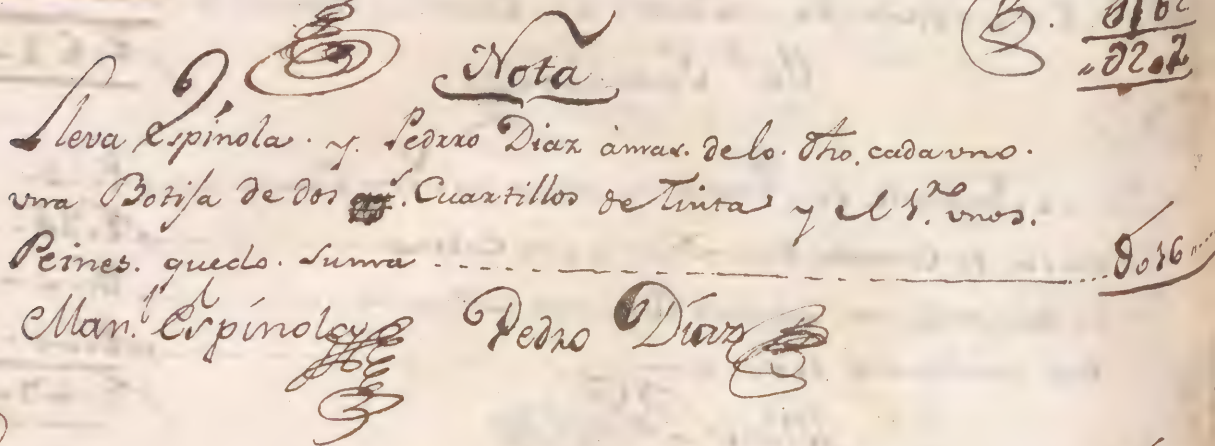 Nota
Lleva Espinola. y. Pedrro Diaz àmas. delo. dho. cada vno.
vna Botija de dos Cuartillos de Tinta y el 1.ro vnos.
Peines. quedo. Suma
Man.l Espinola Pedro Diaz